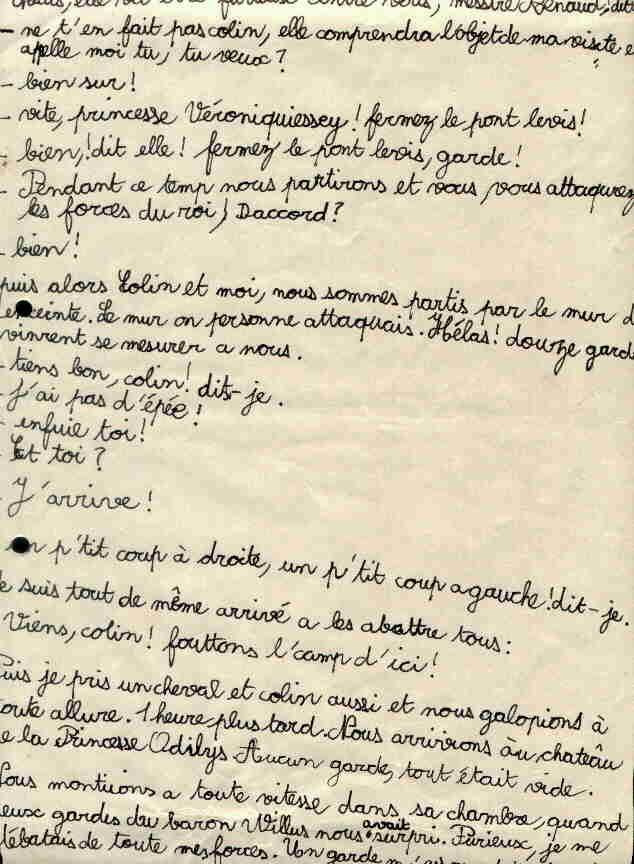 elle va être furieuse contre vous, messire Renaud, dit
- ne t'en fait pas colin, elle comprendra l'objet de ma visite e
apelle moi tu, tu veux ?
- bien sur !
- vite, princesse Véroniquiessey ! fermez le pont levis !
- bien, ! dit elle ! fermez le pont levis, garde !
- Pendant ce temp nous partirons et vous, vous attaqurez
les forces du roi, Daccord ?
- bien !
puis alors Colin et moi, nous sommes partis par le mur d
enceinte. Le mur on personne attaquais. Hélas ! douze gard
vinrent se mesurer a nous.
- tiens bon, colin ! dit-je.
- J'ai pas d'épée !
- enfuie toi !
- Et toi ?
- J'arrive !
un p'tit coup à droite, un p'tit coup a gauche ! dit-je.
e suis tout de même arrivé a les abattre tous :
Viens, colin ! fouttons l'camp d'ici !
Puis je pris un cheval et colin aussi et nous galopions à
oute allure. 1 heure plus tard. Nous arrivirons àu, chateâu
e la Princesse Odilys. Aucun garde, tout était vide.
Nous montiions a toute vitesse dans sa chambre, quand
eux gardes du baron Willus nous avait surpri. Furieux, je me
débatais de toute mes forces. Un garde